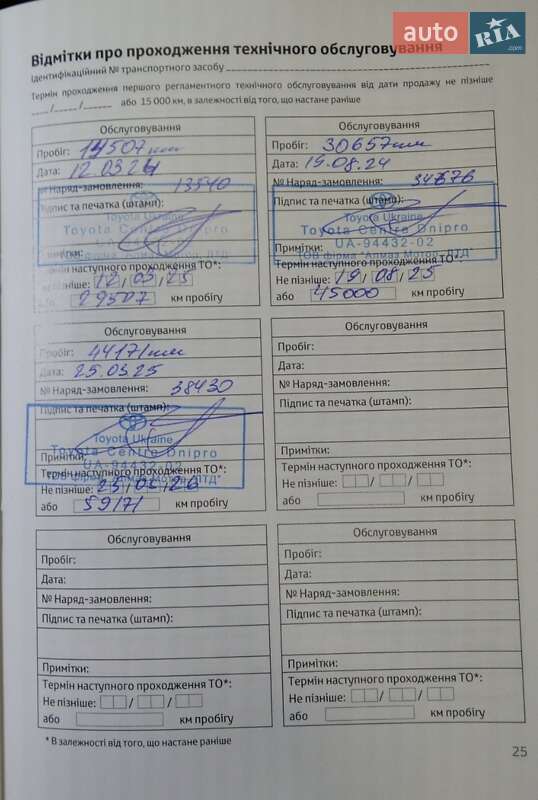 auto RIA .com
Відмітки про проходження технічного обслуговування
Ідентифікаційний № транспортного засобу
Термін проходження першого регламентного технічного обслуговування від дати продажу не пізніше
___/_____/______ або 15 000 км, в залежності від того, що настане раніше
Обслуговування
Пробіг: 14507 км
Дата: 12.03.24
№ Наряд-замовлення: 13540
Підпис та печатка (штамп):
Toyota Ukraine
Toyota Centre Dnipro
UA-94432-02
ТОВ фірма "Алмаз Мотор ЛТД"
Примітки:
Термін наступного проходження ТО*:
Не пізніше: 12 / 03 / 25
або 29507 км пробігу
Обслуговування
Пробіг: 30657 км
Дата: 19.08.24
№ Наряд-замовлення: 34676
Підпис та печатка (штамп):
Toyota Ukraine
Toyota Centre Dnipro
UA-94432-02
ТОВ фірма "Алмаз Мотор ЛТД"
Примітки:
Термін наступного проходження ТО*:
Не пізніше: 19 / 08 / 25
або 45000 км пробігу
Обслуговування
Пробіг: 44171 км
Дата: 25.03.25
№ Наряд-замовлення: 38430
Підпис та печатка (штамп):
Toyota Ukraine
Toyota Centre Dnipro
UA-94432-02
ТОВ фірма "Алмаз Мотор ЛТД"
Примітки:
Термін наступного проходження ТО*:
Не пізніше: 25 / 03 / 26
або 59171 км пробігу
Обслуговування
Пробіг:
Дата:
№ Наряд-замовлення:
Підпис та печатка (штамп):
Примітки:
Термін наступного проходження ТО*:
Не пізніше: / /
або км пробігу
Обслуговування
Пробіг:
Дата:
№ Наряд-замовлення:
Підпис та печатка (штамп):
Примітки:
Термін наступного проходження ТО*:
Не пізніше: / /
або км пробігу
Обслуговування
Пробіг:
Дата:
№ Наряд-замовлення:
Підпис та печатка (штамп):
Примітки:
Термін наступного проходження ТО*:
Не пізніше: / /
або км пробігу
* В залежності від того, що настане раніше
25